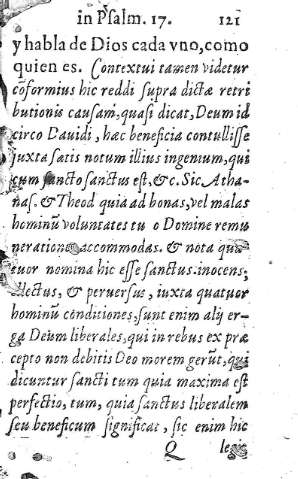 in Psalm. 17. 121
y habla de Dios cada vno, como
quien es. Contextui tamen videtur
cōformius hic reddi supra dictæ retri
butionis causam, quasi dicat, Deum id
circo Dauidi, hæc beneficia contullisse
juxta satis notum illius ingenium, qui
cum sancto sanctus est, &c. Sic. Atha-
nas. & Theod quia ad bonas, vel malas
hominū voluntates tu o Domine remu
nerationē accommodas. & nota qua
tuor nomina hic esse sanctus. inocens,
electus, & peruersus, iuxta quatuor
hominū conditiones, sunt enim alij er-
ga Deum liberales, qui in rebus ex præ
cepto non debitis Deo morem gerūt, qui
dicuntur sancti tum quia maxima est
perfectio, tum, quia sanctus liberalem
seu beneficum significat, sic enim hic
Q legit